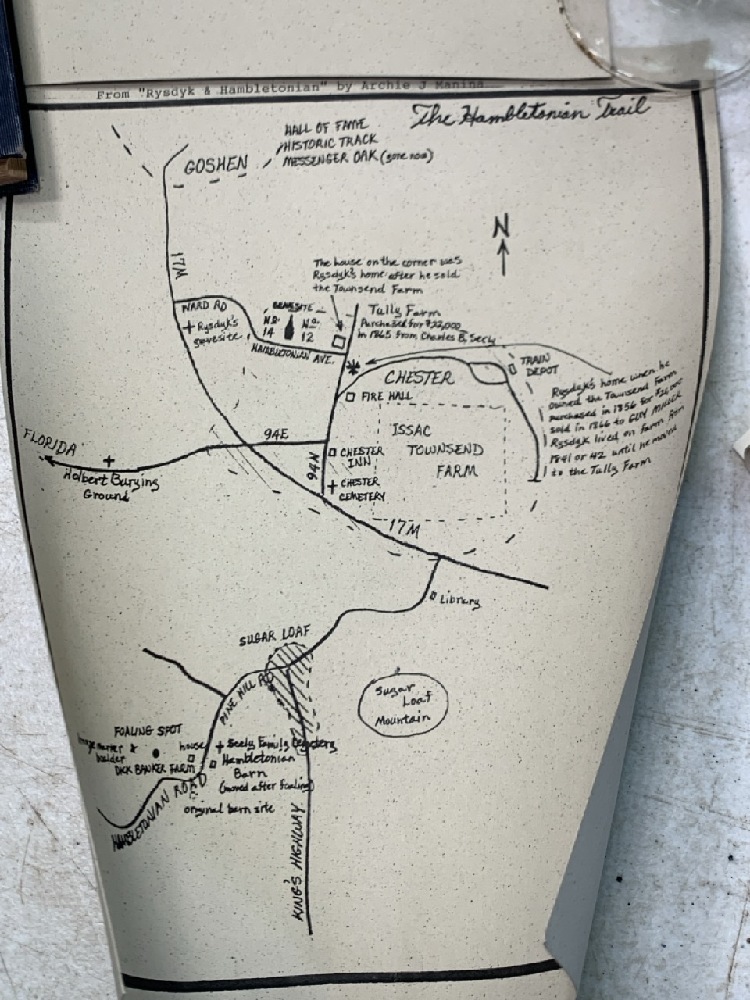 From "Rysdyk & Hambletonian" by Archie J Manina
The Hambletonian Trail
HALL OF FAME
HISTORIC TRACK
MESSENGER OAK (gone now)
GOSHEN
N
17M
The house on the corner was
Rysdyk's home after he sold
the Townsend Farm
WARD RD
Rysdyk's
gravesite
GRAVESITE
NO.
14
NO.
12
HAMBLETONIAN AVE.
Tully Farm
Purchased for $22,000
in 1865 from Charles B. Seely
CHESTER
TRAIN
DEPOT
FIRE HALL
ISSAC
TOWNSEND
FARM
Rysdyk's home when he
owned the Townsend Farm
purchased in 1856 for
sold in 1866 to GUY MILLER
Rysdyk lived on farm from
1841 or 42 until he moved
to the Tully Farm
FLORIDA
94E
94N
Holbert Burying
Ground
CHESTER
INN
CHESTER
CEMETERY
17M
Library
SUGAR LOAF
PINE HILL RD
Sugar
Loaf
Mountain
FOALING SPOT
marker &
house
DICK BANKER FARM
Seely Family Cemetery
Hambletonian
Barn
(moved after foaling)
original barn site
HAMBLETONIAN ROAD
KING'S HIGHWAY